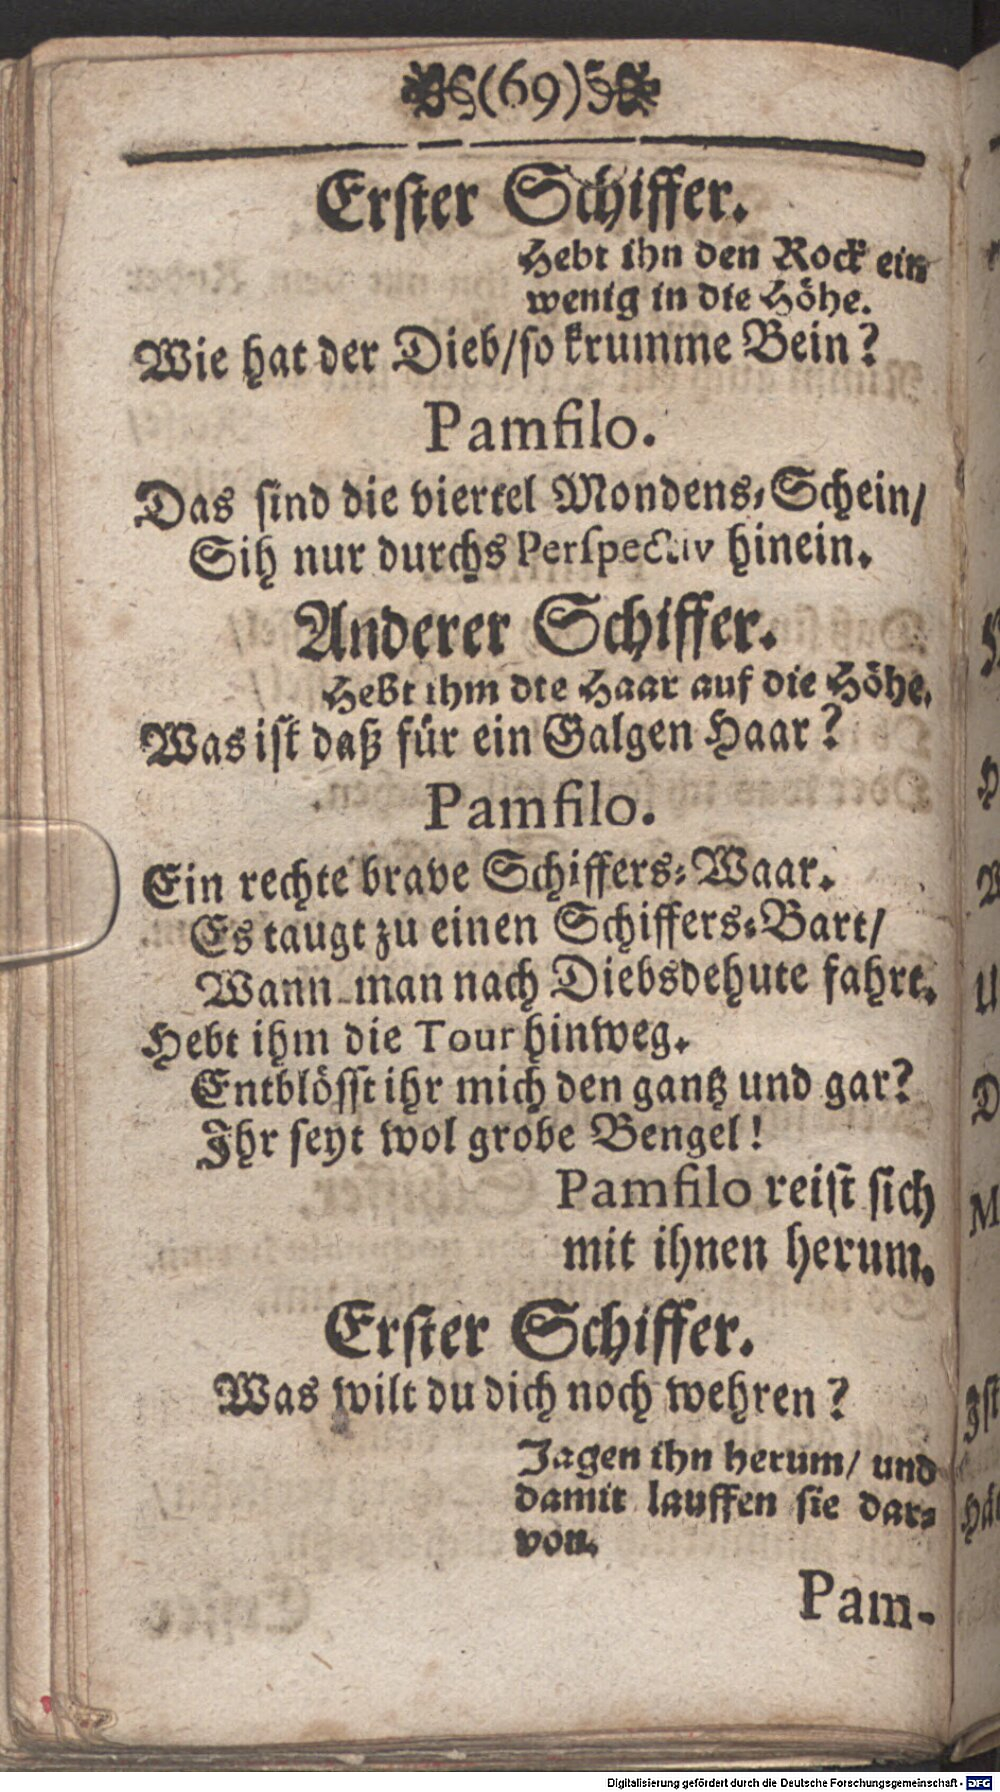 (69)
Erster Schiffer.
Hebt ihn den Rock ein
wenig in die Höhe.
Wie hat der Dieb/so krumme Bein?
Pamfilo.
Das sind die viertel Mondens-Schein/
Sih nur durchs Perspectiv hinein.
Anderer Schiffer.
Hebt ihm die Haar auf die Höhe.
Was ist daß für ein Galgen Haar?
Pamfilo.
Ein rechte brave Schiffers-Waar.
Es taugt zu einen Schiffers-Bart/
Wann man nach Diebsdehute fahrt.
Hebt ihm die Tour hinweg.
Entblösst ihr mich den gantz und gar?
Ihr seyt wol grobe Bengel!
Pamfilo reist sich
mit ihnen herum.
Erster Schiffer.
Was wilt du dich noch wehren?
Jagen ihn herum/ und
damit lauffen sie dar-
von.
Pam-
Digitalisierung gefördert durch die Deutsche Forschungsgemeinschaft - DFG